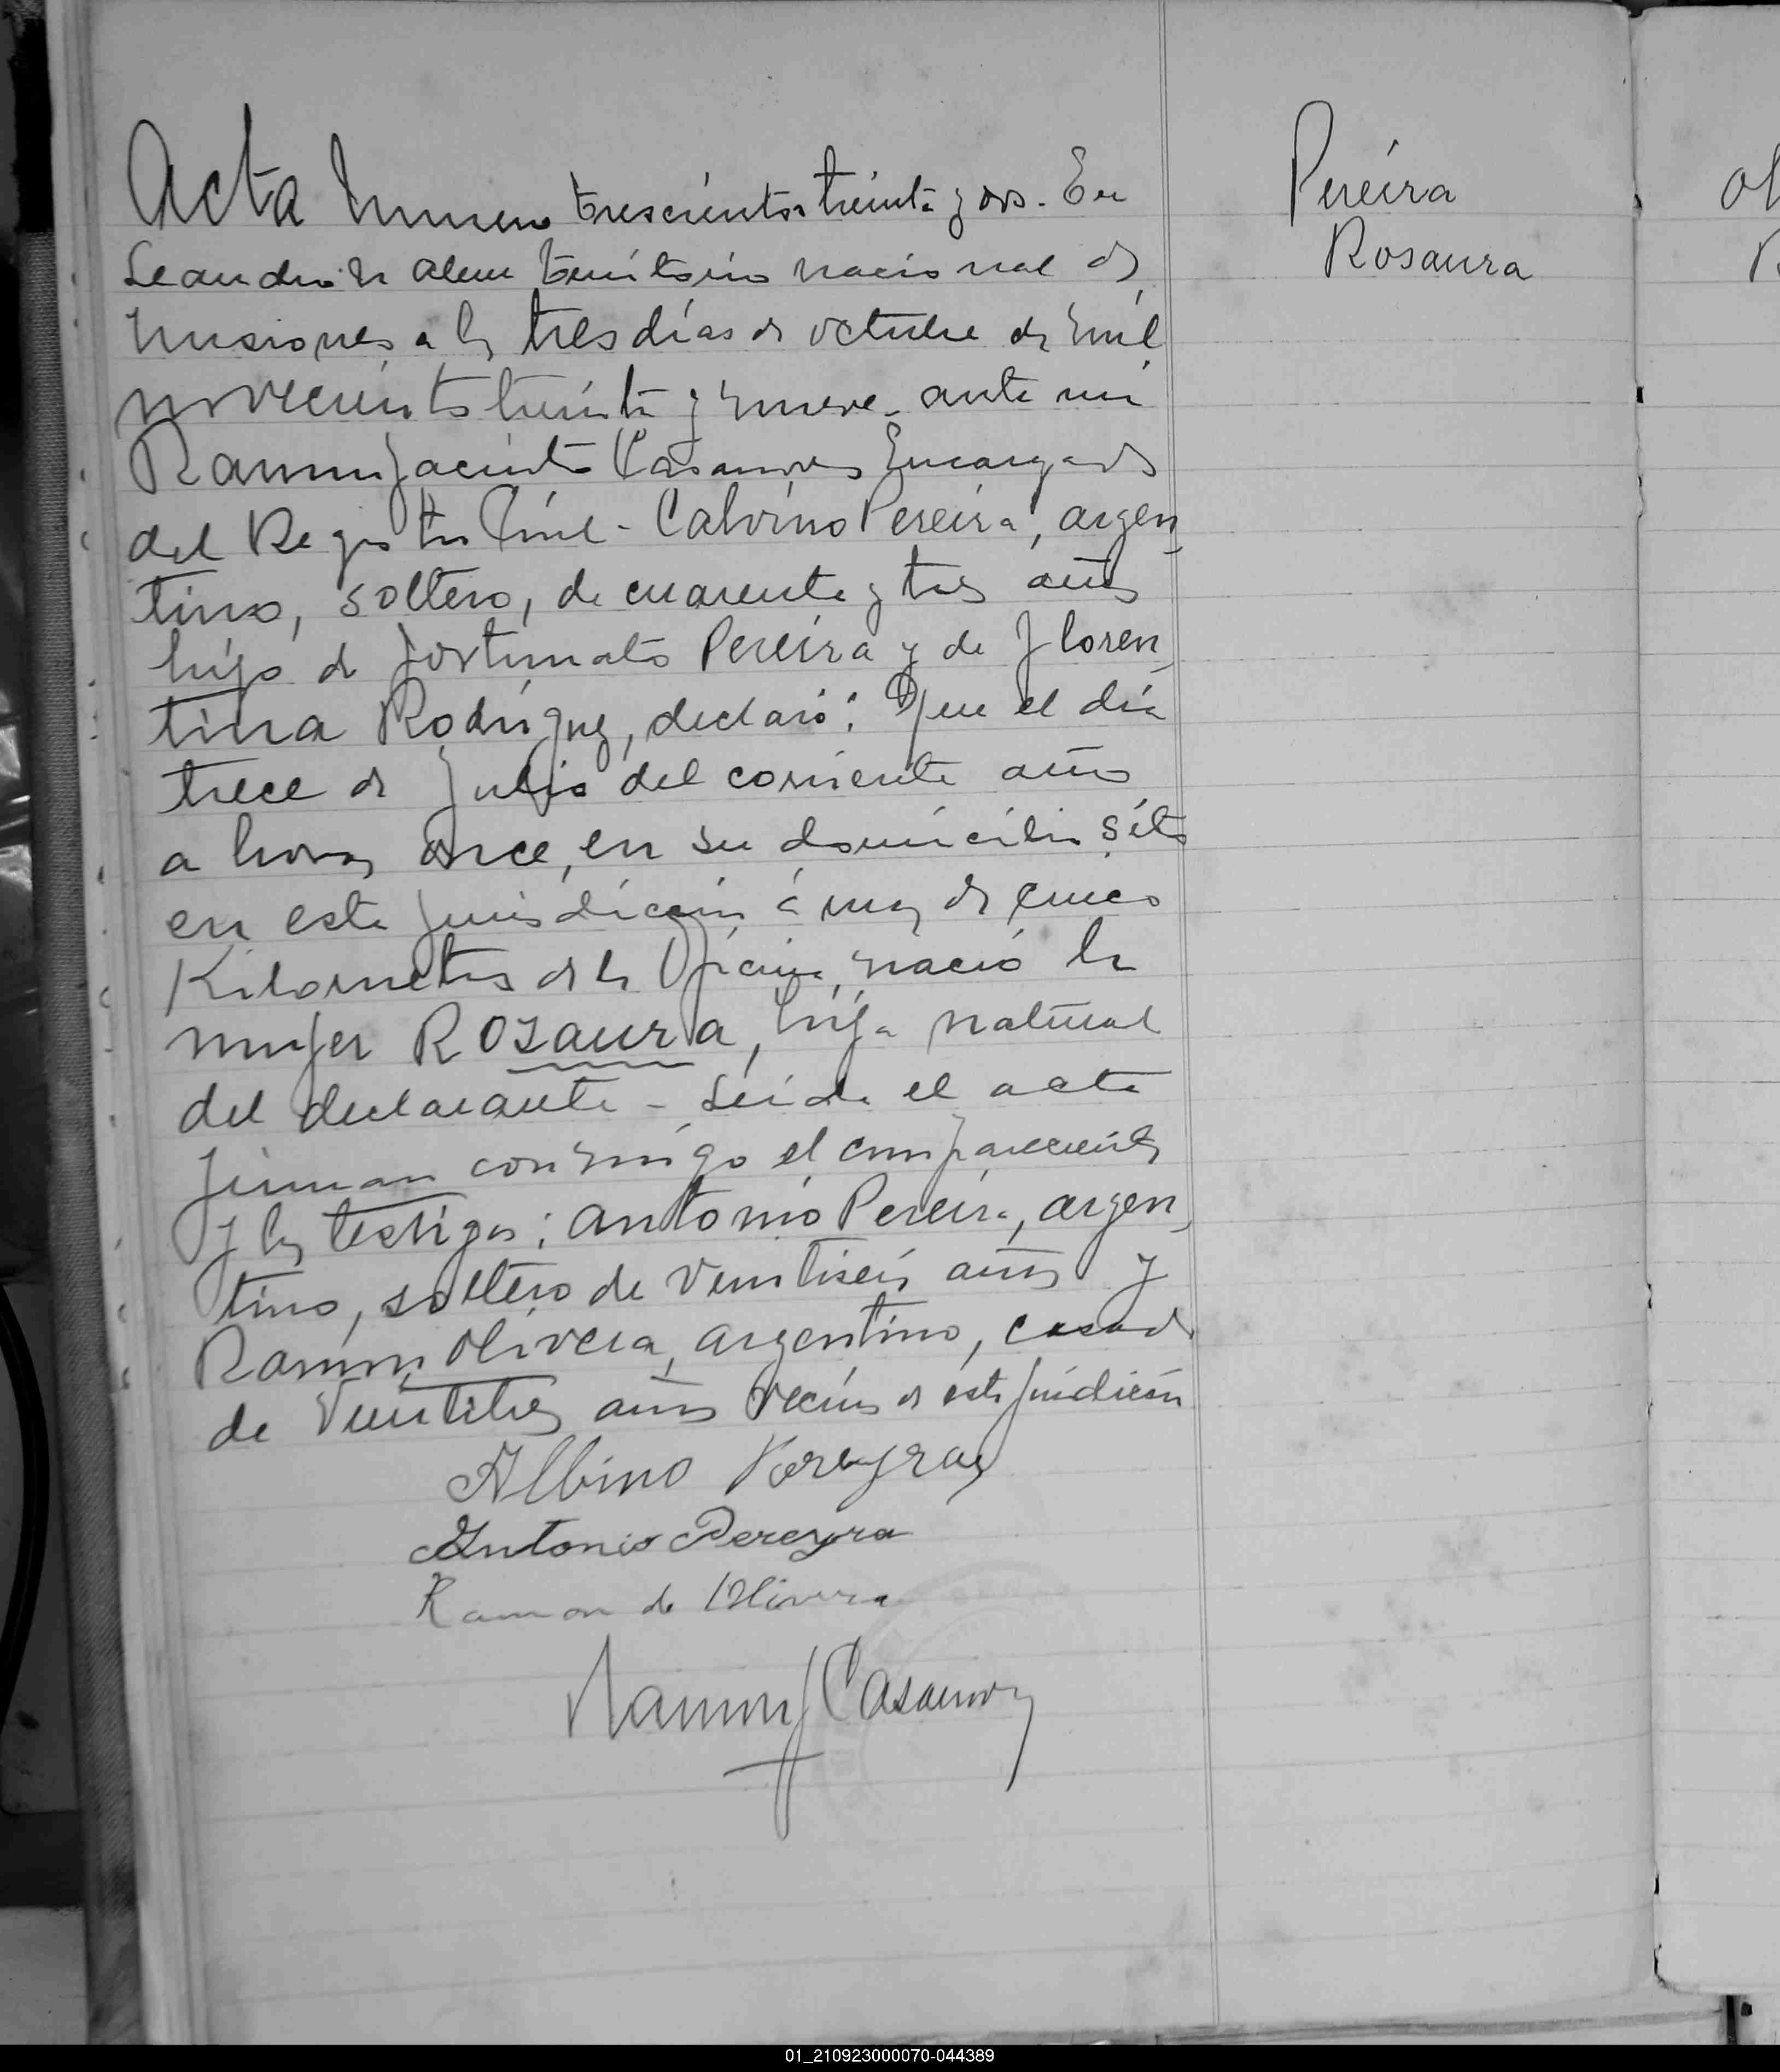 Acta Numero trescientos treinta y dos. En
Leandro N Alem territorio nacional de
Misiones a los tres días de octubre de mil
novecientos treinta y nueve. ante mi
Ramon Jacinto Casanova Encargado
del Registro Civil - Calvino Pereira, argen
tino, soltero, de cuarenta y tres años
hijo de Fortunato Pereira y de Floren
tina Rodriguez, declaró: Que el día
trece de Julio del corriente año
a horas once, en su domicilio sito
en esta jurisdicción á mas de cinco
Kilometros de la Oficina, nació la
mujer Rosaura, hija natural
del declarante - Leida el acta
firman conmigo el compareciente
y los testigos: Antonio Pereira, argen
tino, soltero de veintiseis años y
Ramon Olivera, argentino, casado
de veintitres años vecinos de esta
Albino Pereyra
Antonio Pereyra
Ramon de Olivera
Ramon J Casanova
Pereira
Rosaura
Ol
R
01_210923000070-044389